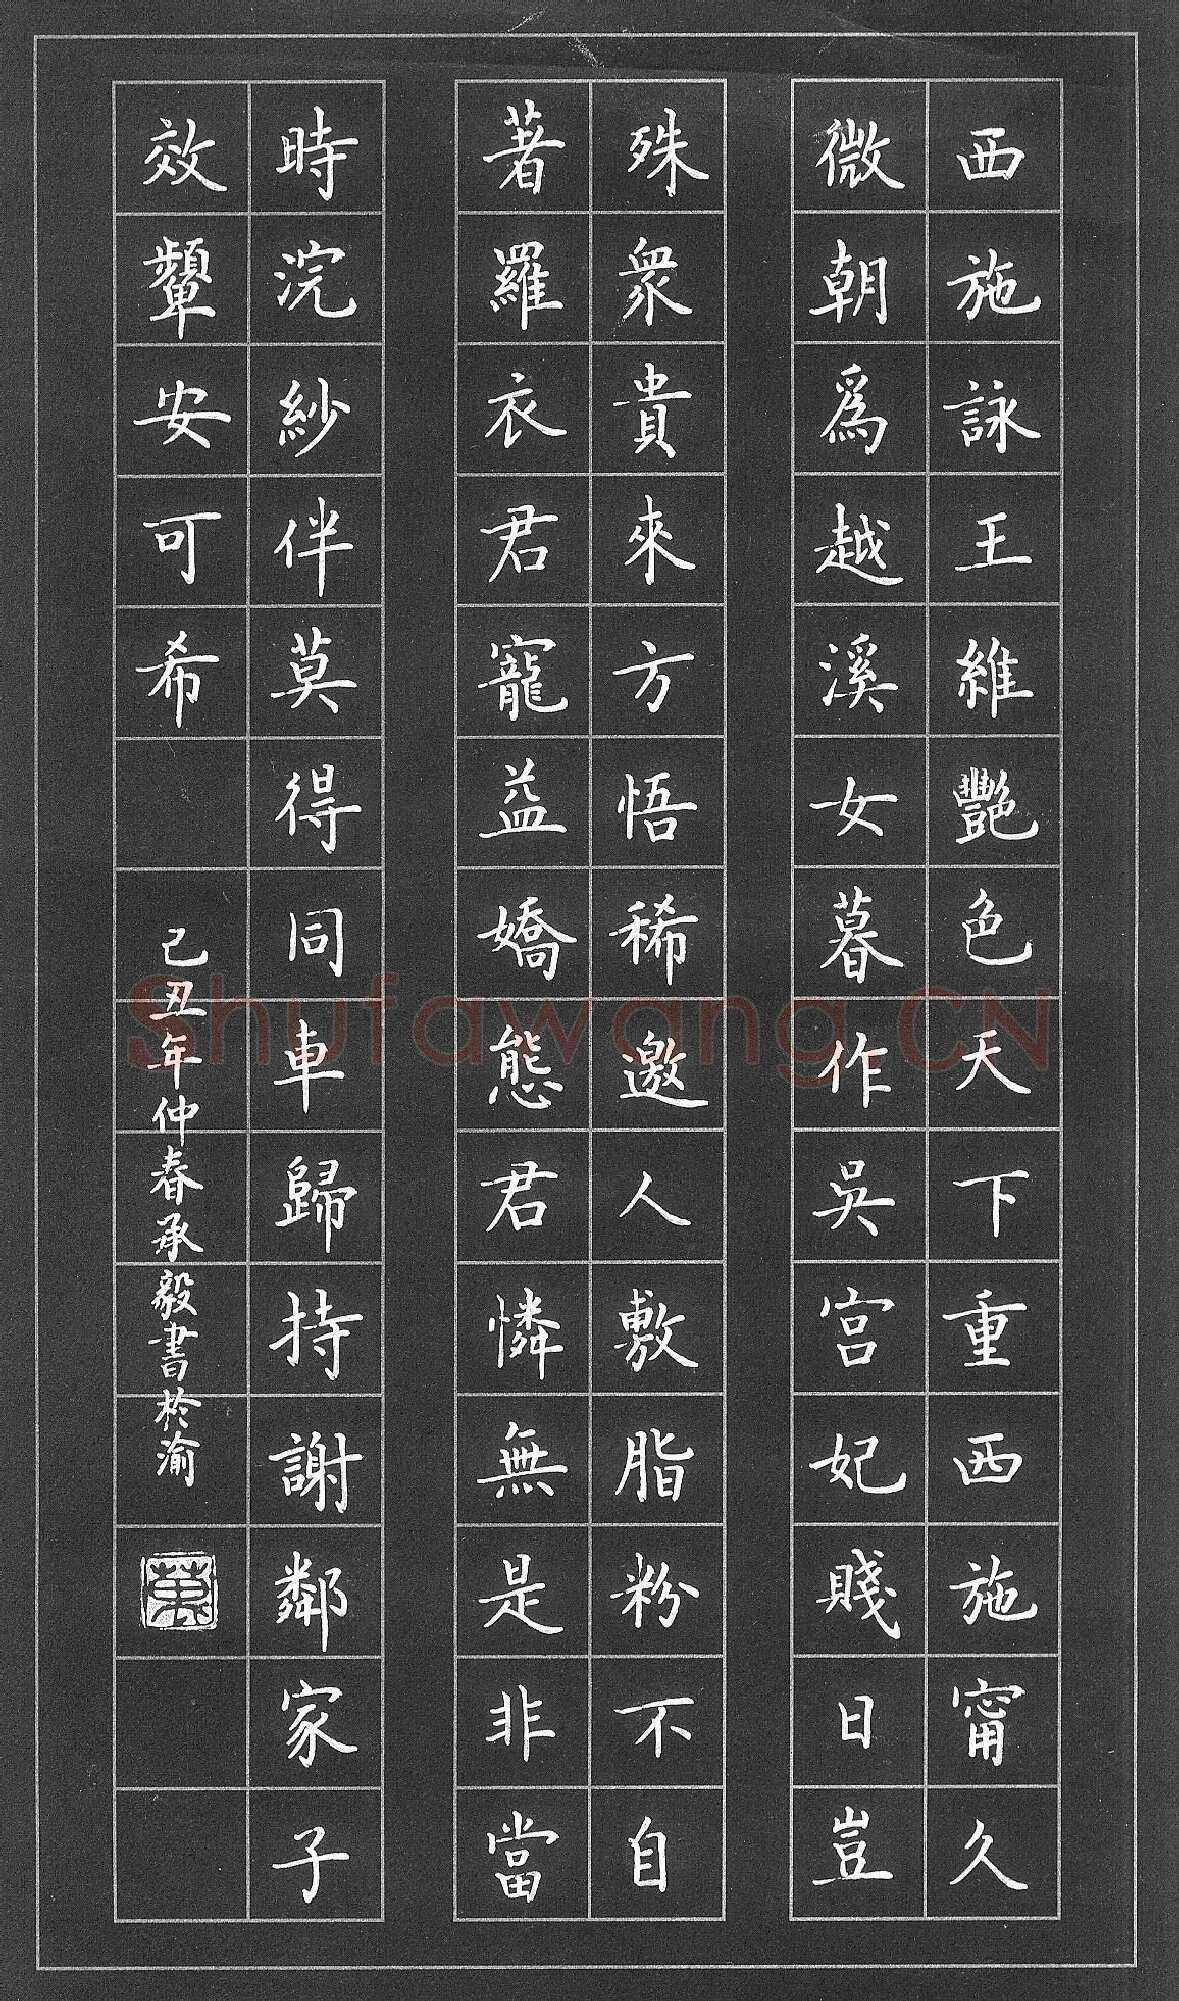 西施詠王維艷色天下重西施甯久
微朝爲越溪女暮作吳宫妃賤日豈
殊衆貴來方悟稀邀人敷脂粉不自
著羅衣君寵益嬌態君憐無是非當
時浣紗伴莫得同車歸持謝鄰家子
效顰安可希
己丑年仲春承毅書於渝
Shufawang.CN